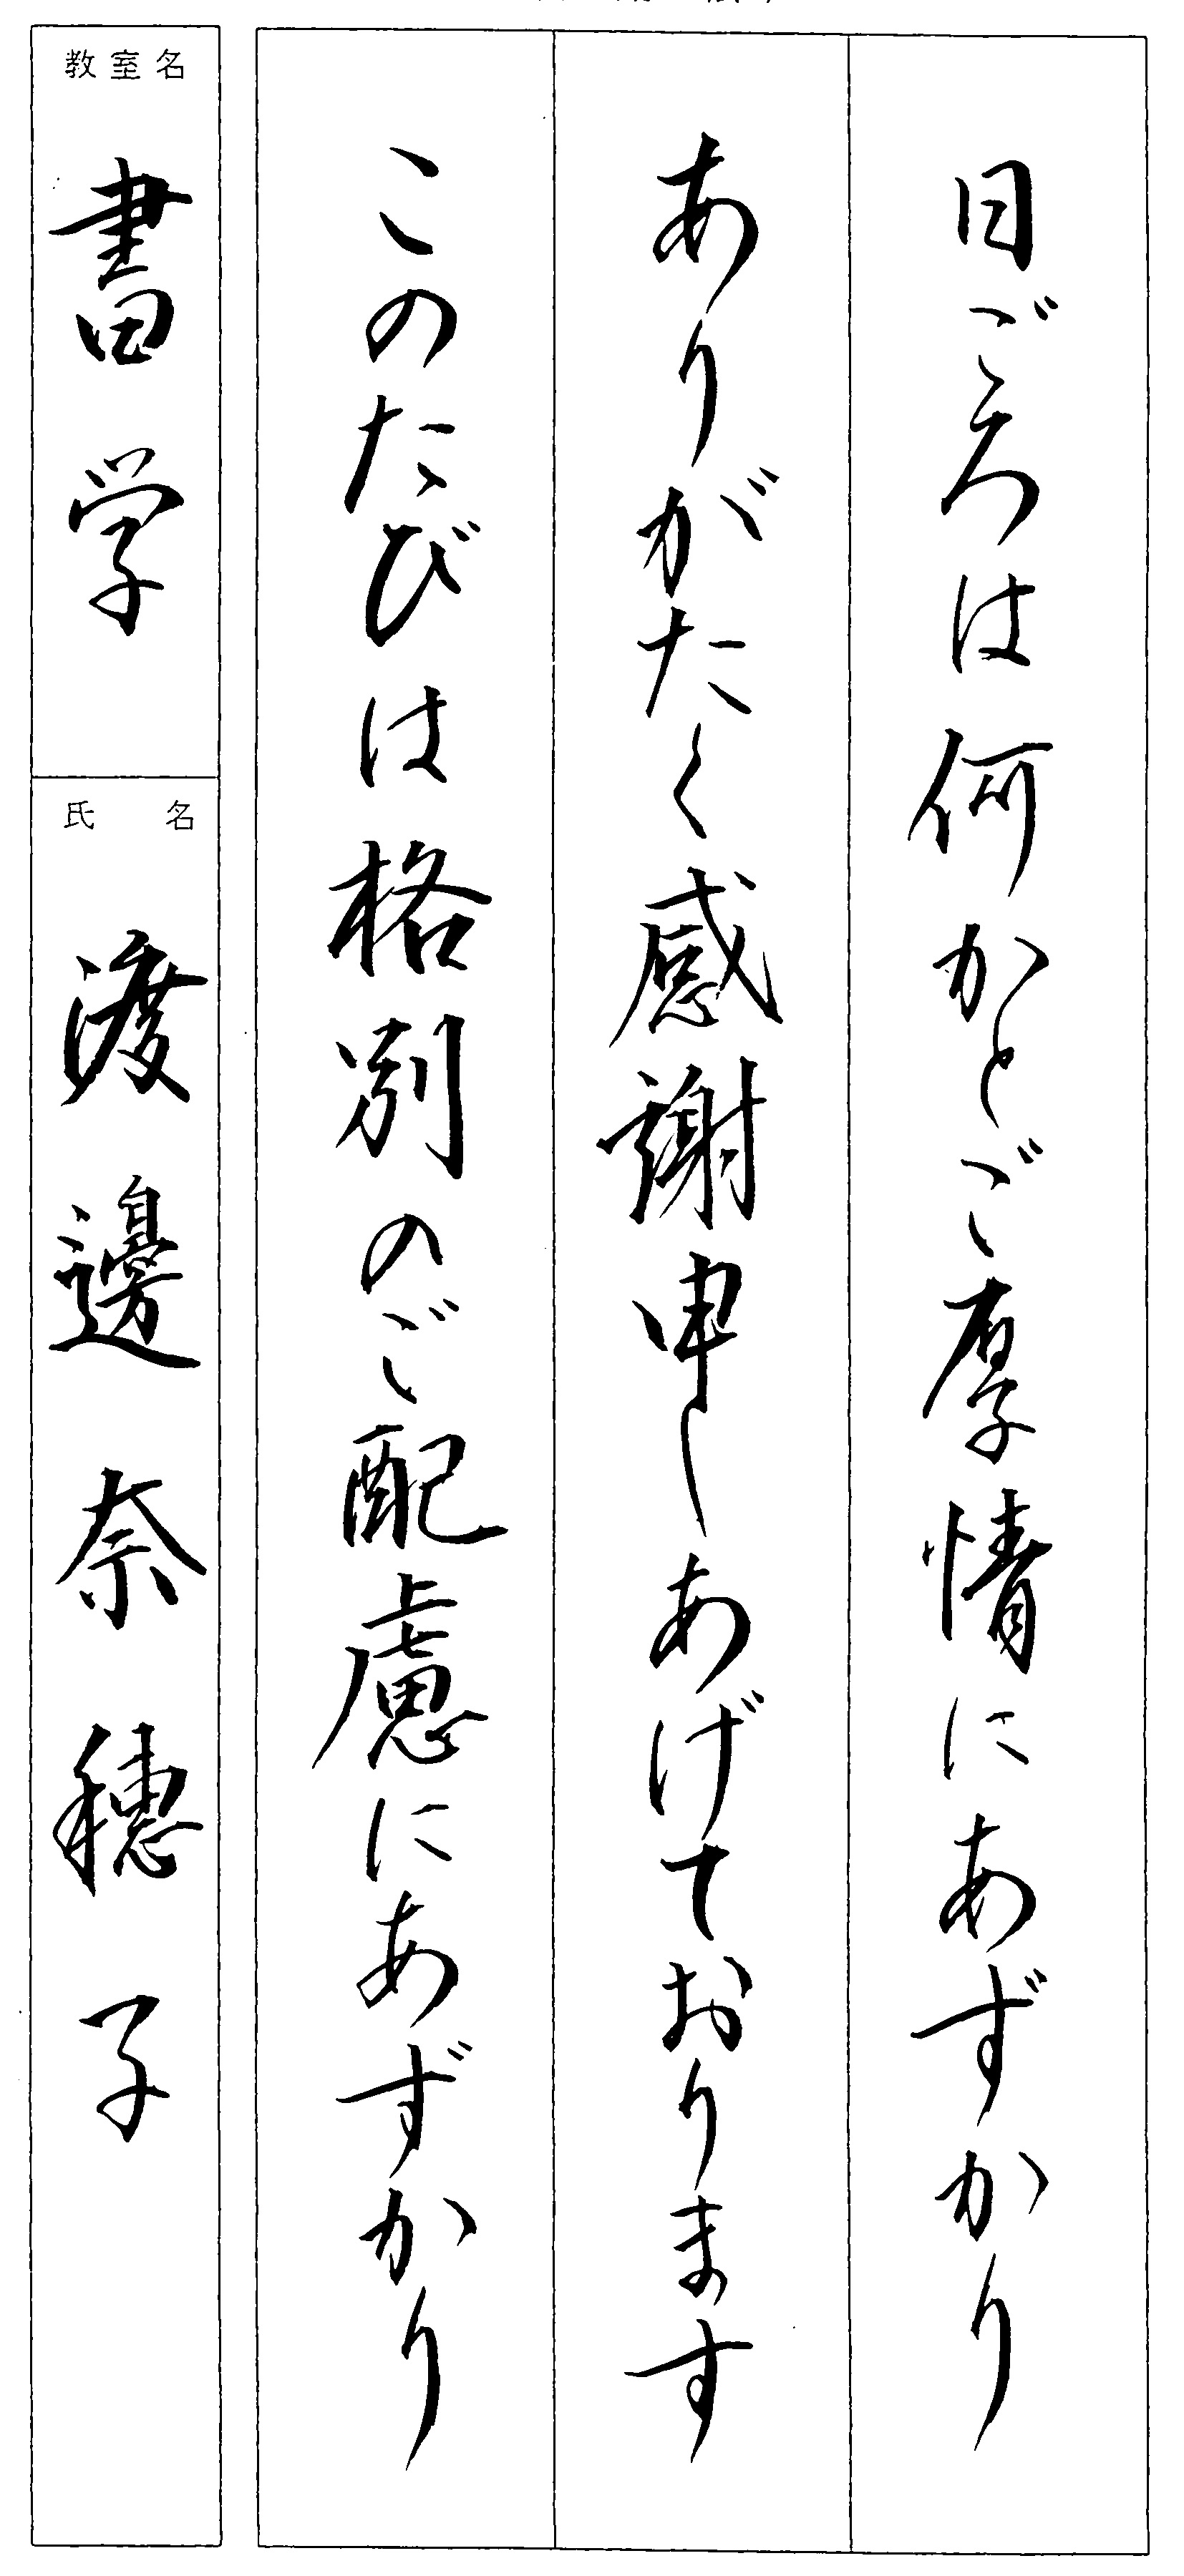 日ごろは何かとご厚情にあずかり
ありがたく感謝申しあげております
このたびは格別のご配慮にあずかり
教室名
書学
氏名
渡邊奈穂子